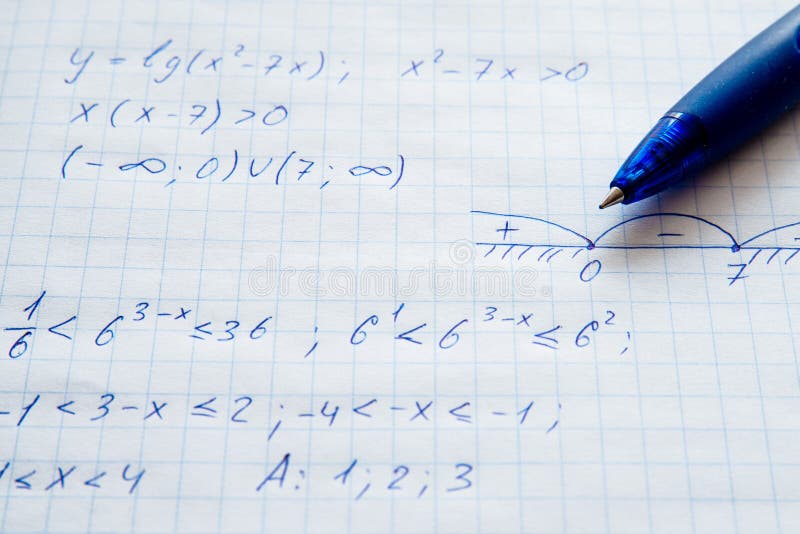 y = lg(x²-7x); x²-7x >0
x(x-7)>0
(-∞; 0)∪(7; ∞)
+ - 
0 7
1/6 < 6^3-x ≤ 36 ; 6^1 < 6^3-x ≤ 6^2;
-1 < 3-x ≤ 2; -4 < -x ≤ -1;
1 ≤ x < 4 A: 1; 2; 3